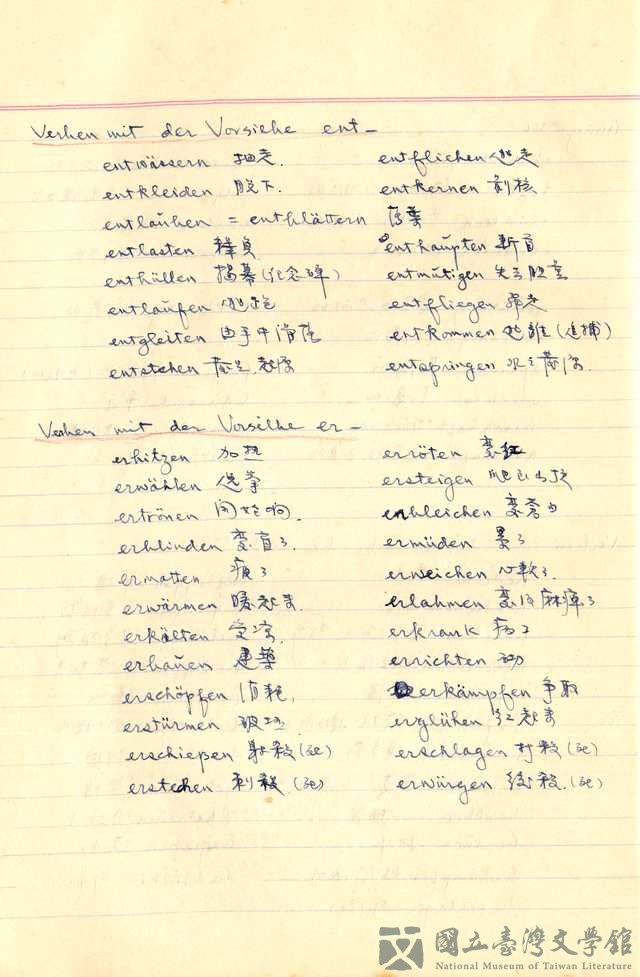 Verben mit der Vorsilbe ent-
entwässern 抽走. entfliehen 逃走
entkleiden 脫下. entkernen 剝核
entlauben = entblättern 落葉
entlasten 釋負 enthaupten 斬首
enthüllen 揭幕(纪念碑) entmutigen 失去胆量
entlaufen 逃跑 entfliegen 飛走
entgleiten 由手中滑落 entkommen 逃離(追捕)
entstehen 發生.起源 entspringen
Verben mit der Vorsilbe er-
erhitzen 加热 erröten 变紅
erwählen 选举 ersteigen 爬山
ertönen 開始响. erbleichen 变蒼白
erblinden 变盲了. ermüden 累了
ermatten 疲了 erweichen 心軟了.
erwärmen 暖起來 erlahmen 麻痺了
erkälten 受凉. erkrank 病了
erbauen 建築 errichten
erschöpfen 消耗. erkämpfen 争取
erstürmen erglühen 红起來
erschießen 射殺(死) erschlagen 打殺(死)
erstechen 刺殺(死) erwürgen 絞殺.(死)
國立臺灣文學館
National Museum of Taiwan Literature